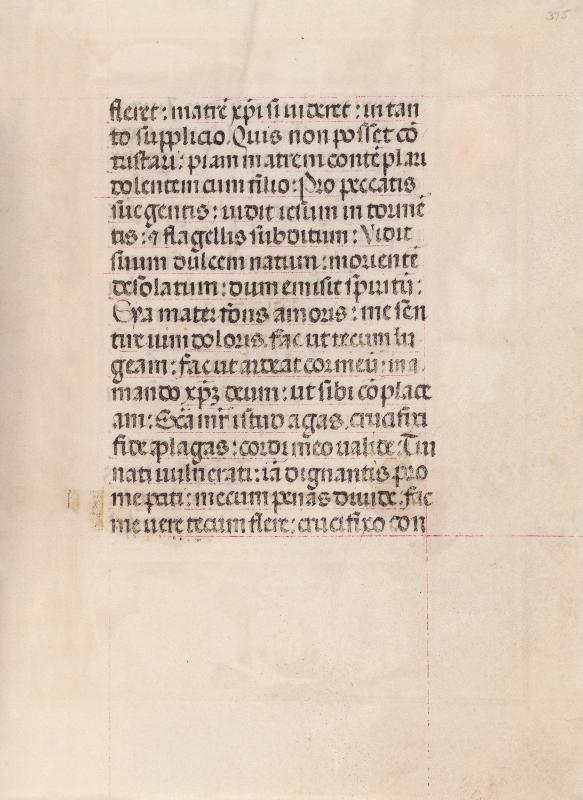 375
fleret : matrē xp̄i si uideret : in tan
to supplicio. Quis non posset cō
tristari : piam matrem contēplari
dolentem cum filio : Pro peccatis
sue gentis : uidit iesum in tormē
tis : ⁊ flagellis subditum : Vidit
suum dulcem natum : moriente
desolatum : dum emisit sp̄ritū :
Eya mater fons amoris : me sen
tire uim doloris. fac ut tecum lu
geam : fac ut ardeat cor meū : in a
mando xp̄ꝫ deum : ut sibi cōplace
am : Sc̄a mr̄ istud agas. crucifixi
fige plagas : cordi meo ualide. Tui
nati uulnerati : iā dignantis pro
me pati : mecum penas diuide. fac
me uere tecum flere : crucifixo con